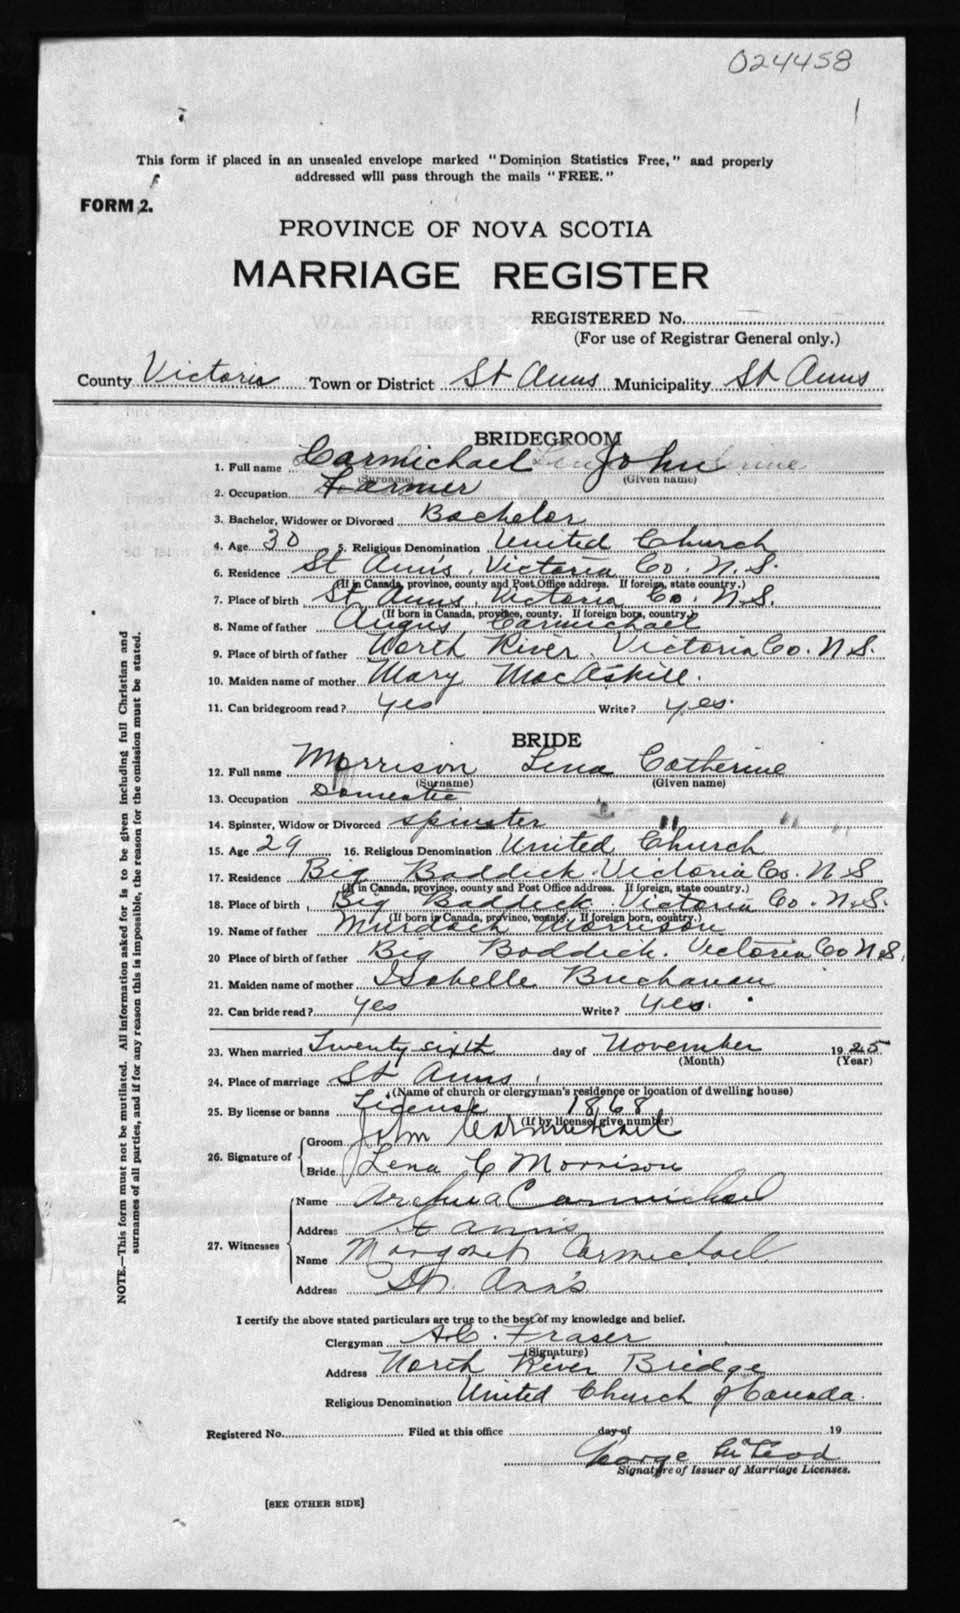 024458
This form if placed in an unsealed envelope marked "Dominion Statistics Free," and properly
addressed will pass through the mails "FREE."
FORM 2.
PROVINCE OF NOVA SCOTIA
MARRIAGE REGISTER
REGISTERED No.
(For use of Registrar General only.)
County Victoria Town or District St Anns Municipality St Anns
BRIDEGROOM
1. Full name Carmichael John
(Surname) (Given name)
2. Occupation Farmer
3. Bachelor, Widower or Divorced Bachelor
4. Age 30 5. Religious Denomination United Church
6. Residence St Ann's, Victoria Co. N.S.
(If in Canada, province, county and Post Office address. If foreign, state country.)
7. Place of birth St Anns, Victoria Co. N.S.
(If born in Canada, province, county. If foreign born, country.)
8. Name of father Angus Carmichael
9. Place of birth of father North River, Victoria Co. N.S.
10. Maiden name of mother Mary MacAskill.
11. Can bridegroom read? yes Write? yes.
BRIDE
12. Full name Morrison Lena Catherine
(Surname) (Given name)
13. Occupation Domestic
14. Spinster, Widow or Divorced Spinster
15. Age 29 16. Religious Denomination United Church
17. Residence Big Baddeck Victoria Co. N.S
(If in Canada, province, county and Post Office address. If foreign, state country.)
18. Place of birth Big Baddeck Victoria Co. N.S.
(If born in Canada, province, county. If foreign born, country.)
19. Name of father Murdoch Morrison
20 Place of birth of father Big Boddick. Victoria Co N.S.
21. Maiden name of mother Isabelle Buchanan
22. Can bride read? Yes Write? Yes.
23. When married Twenty sixth day of November 1925
(Month) (Year)
24. Place of marriage St Anns
(Name of church or clergyman's residence or location of dwelling house)
25. By license or banns License 1868
(If by license, give number)
26. Signature of Groom John Carmichael
Bride Lena C Morrison
27. Witnesses Name Carmichael
Address St Ann's
Name Margaret Carmichael
Address St. Ann's
I certify the above stated particulars are true to the best of my knowledge and belief.
Clergyman A.C. Fraser
(Signature)
Address North River Bridge
Religious Denomination United Church of Canada.
Registered No. Filed at this office day of 19
George McLeod
Signature of Issuer of Marriage Licenses.
[SEE OTHER SIDE]
NOTE.—This form must not be mutilated. All information asked for is to be given including full Christian and
surnames of all parties, and if for any reason this is impossible, the reason for the omission must be stated.